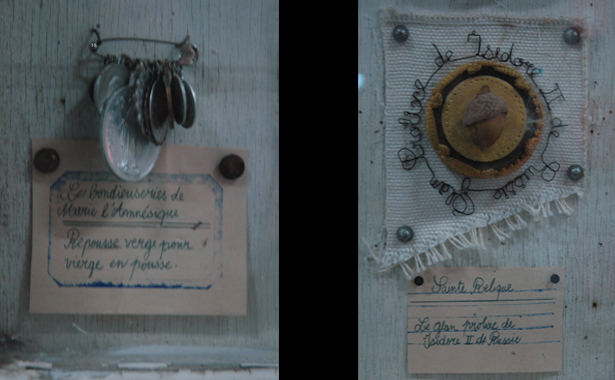 Les bondieuseries de
Marie l'Amnésique
Repousse verge pour
vierge en pousse.
Glan Prolixe de Isidore II de Russie
Sainte Relique
Le glan prolixe de
Isidore II de Russie